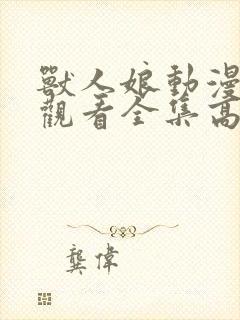 獸人娘動漫
觀看全集高
龔偉